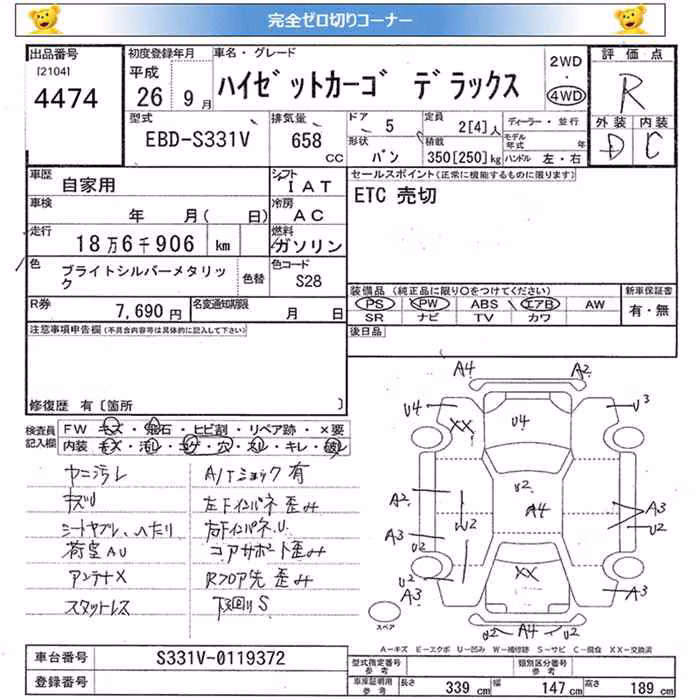 完全ゼロ切りコーナー
出品番号
[2104]
4474
初度登録年月
平成
26 9月
車名・グレード
ハイゼットカーゴ デラックス
2WD
・
4WD
評価点
R
外装 内装
D C
型式
EBD-S331V
排気量
658
cc
ドア 5
形状 バン
定員 2[4]人
積載 350[250]kg
ディーラー・並行
モデル年式 年
ハンドル 左・右
車歴 自家用
シフト IAT
車検 年 月( 日)
冷房 AC
走行 18万6千906 km
燃料 ガソリン
色 ブライトシルバーメタリック
色替
色コード S28
R券 7,690円
名変通知期限 月 日
セールスポイント(正常に機能するものに限ります)
ETC 売切
装備品(純正品に限り○をつけてください)
PS PW ABS エアB AW
SR ナビ TV カワ
新車保証書
有・無
後日品
注意事項申告欄(不具合内容等は具体的に記入して下さい)
修復歴 有〔箇所 〕
検査員記入欄
FW キズ・飛石・ヒビ割・リペア跡・×要
内装 キズ・汚レ・コゲ・穴・スレ・キレ・破レ
ヤニ汚レ
キズU
シートヤブレ、ヘタリ
荷室AU
アンテナX
スタットレス
A/Tショック有
左Fインパネ歪み
右Fインパネ.U.
コアサポート歪み
Rフロア先歪み
下廻りS
A4 A2
U4 XX U4 U3
A2 U2 U2 A4 A3
U2
A3 U2
U2 A3
XX A3
U2 A4 U2
スペア
A-キズ E-エクボ U-凹み W-補修跡 S-サビ C-腐食 XX-交換済
車台番号 S331V-0119372
登録番号
型式指定番号参考
類別区分番号参考
車庫証明用参考 長さ 339cm 幅 147cm 高さ 189cm